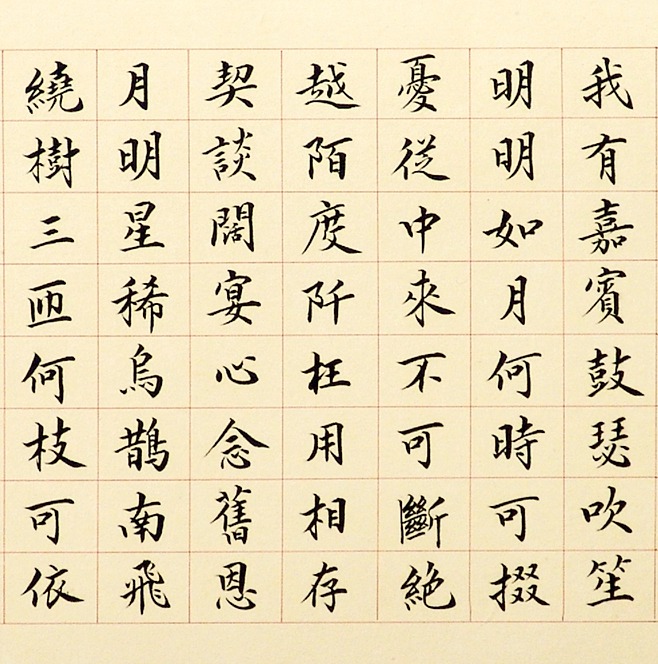 我有嘉賓鼓瑟吹笙
明明如月何時可掇
憂從中來不可斷絕
越陌度阡枉用相存
契談闊宴心念舊恩
月明星稀烏鵲南飛
繞樹三匝何枝可依